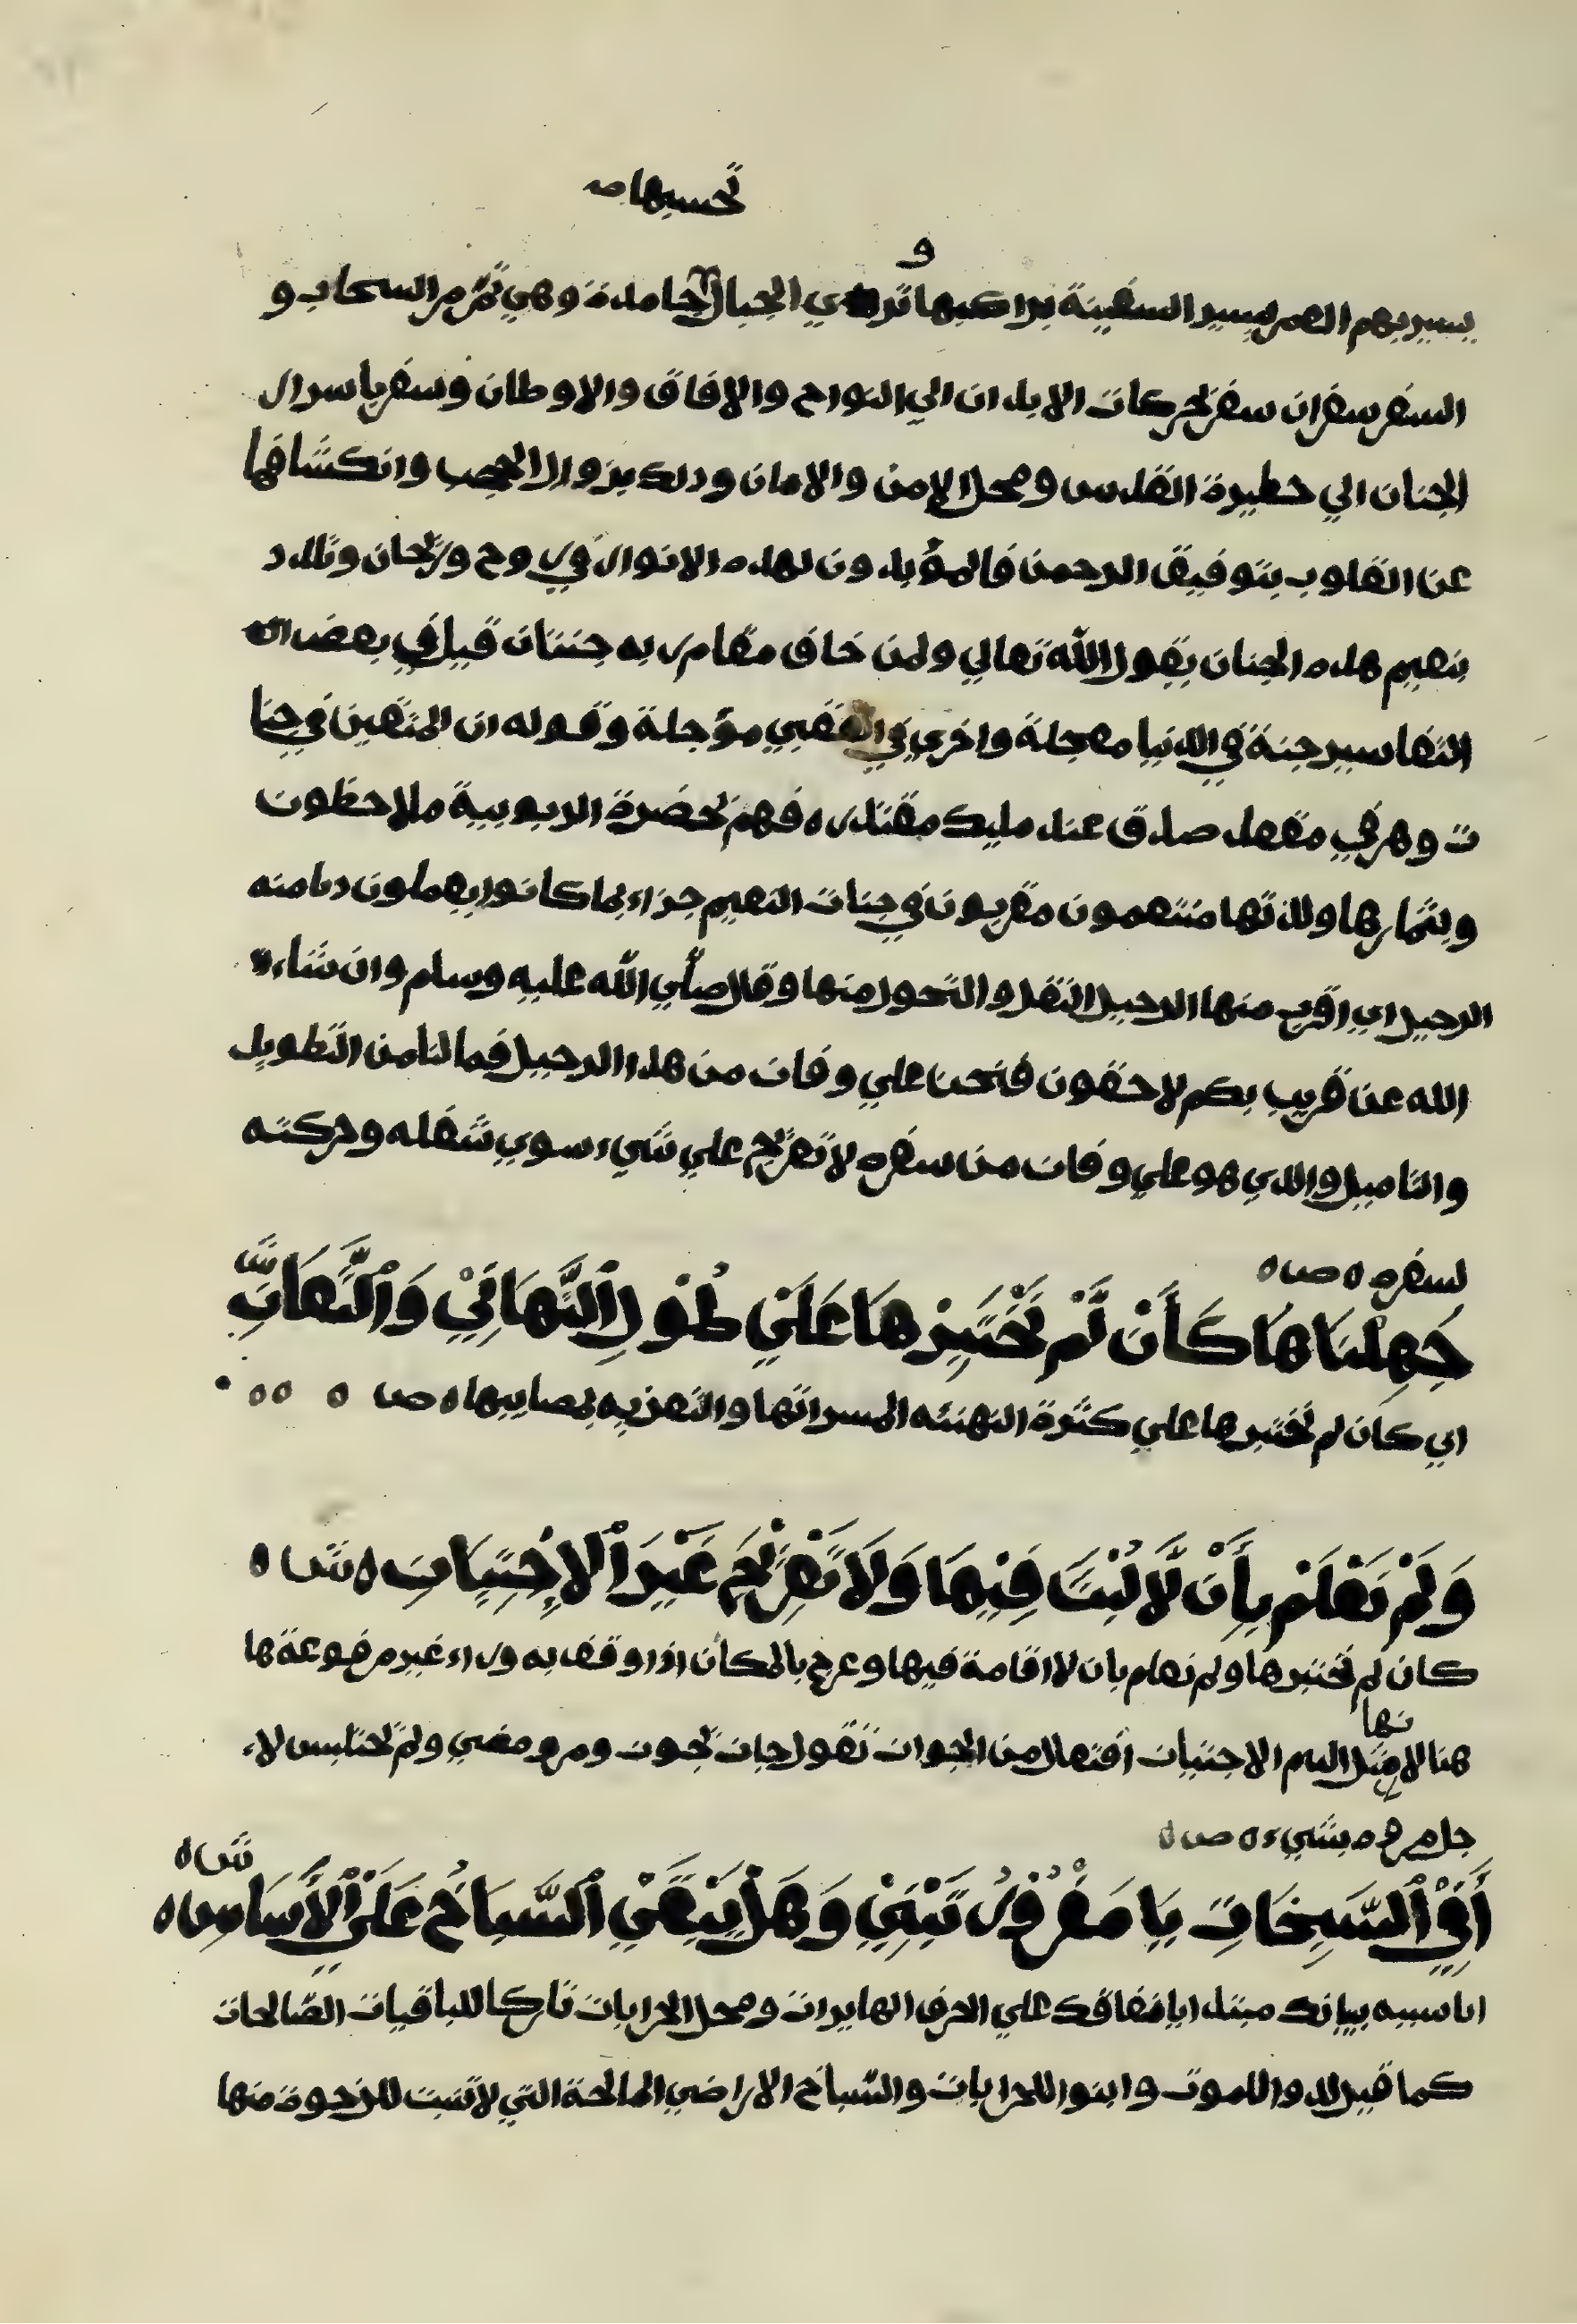 تحسبها صه
و
يسير بهم العمر يسير السفينة براكبها تري الجبال جامدة وهي تمر مر السحاب و
السفر سفران سفر بحركات الابدان الي النواح والافاق والاوطان وسفر باسرار
الجنان الي حظيرة القدس ومحل الامن والامان وذلك بزوال الحجب وانكشافها
عن القلوب بتوفيق الرحمن فالمؤيدون لهذه الانوار في روح وريحان وتلذذ
بنعيم هذه الجنان يقول الله تعالي ولمن خاف مقام ربه جنتان قيل في بعض
التفاسير جنة في الدنيا معجلة واخري في العقبي مؤجلة وقوله ان المتقين في جنا
ت ونهر في مقعد صدق عند مليك مقتدر ه فهم بحضرة الربوبية ملاحظون
وبثمارها ولذتها متنعمون مقربون في جنات النعيم جزاء بما كانوا يعملون دنا منه
الرحيل اي اقرب منها الرحيل التنقل والتحول منها وقال صلي الله عليه وسلم وان شاء
الله عن قريب بكم لاحقون فنحن علي وفات من هذا الرحيل فما لنا من التطويل
والتاميل والذي هو علي وفات من سفره لا تعريج علي شيء سوي شغله وحركته
لسفره ه ص ه
جَهِلْنَاهَا كَأَنْ لَّمْ نَخْتَبِرْهَا عَلَيٰ طُوْلِ التَّهَانِيْ وَالتَّعَازِ ش
اي كان لم نختبرها علي كثرة التهنئه المسراتها والتعزيه لمصايبها ه ص ه ه ه
وَلَمْ نَعْلَمْ بِأَنْ لَّا لُبْثَ فِيْهَا وَلَا تَعْرِيْجَ غَيْرَ الْإِجْتِيَازِ ه ش ه
كان لم نختبرها ولم نعلم بان لا اقامة فيها وعرج بالمكان اذا وقف به وراء غير مرفوعة ها
نها
هنا لا مثل اللام الاجتياز افتعال من الجواز تقول جاز يجوز ومر ومضي ولم يحتبس لا
جل مره بشيء ه ص ه
أَفِي السَّبِخَاتِ يَا مَغْرُوْرُ تَبْنِيْ وَهَلْ يَبْقَيْ السَّبَاخُ عَلَيْ الْأَسَاسِ ه ش ه
اساسيه بيانك مبتدا بانفاقك علي الحرف الهايرات ومحل الخرابات تاركا للباقيات الصالحات
كما قيل لدوا للموت وابنوا للخرابات والسباخ الاراضي المالحة التي لا تنبت للزخوة منها